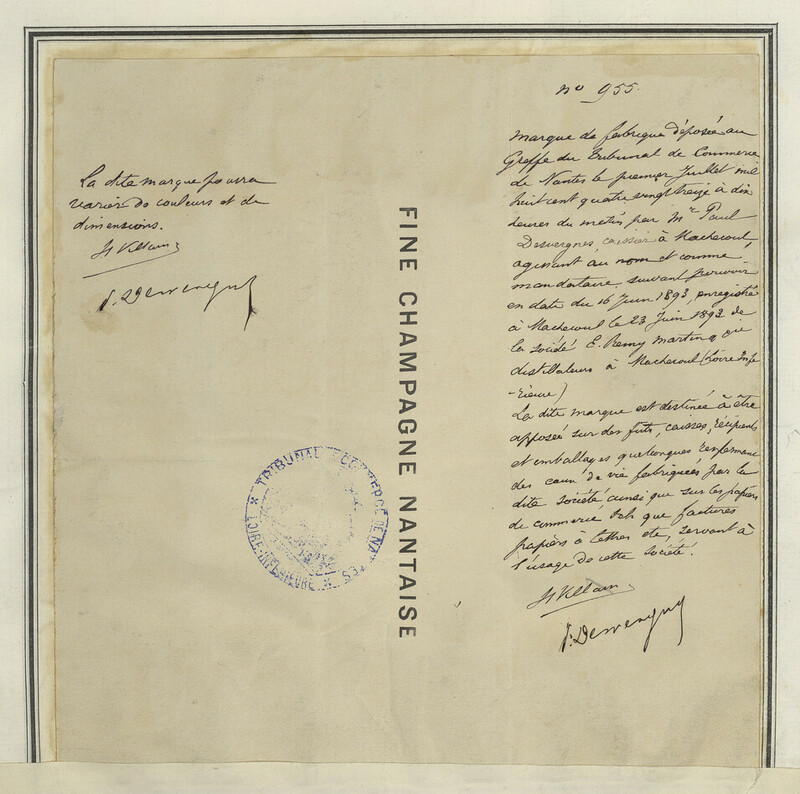 La dite marque pourra
varier de couleurs et de
dimensions.
H Villain
P. Desvergnes
FINE CHAMPAGNE NANTAISE
TRIBUNAL DE COMMERCE DE NANTES
LOIRE-INFÉRIEURE
no 955.
marque de fabrique déposée au
Greffe du Tribunal de Commerce
de Nantes le premier Juillet mil
huit cent quatre vingt treize à dix
heures du matin par Mr Paul
Desvergnes, caissier à Machecoul,
agissant au nom et comme
mandataire suivant pouvoir
en date du 16 Juin 1893, enregistré
à Machecoul le 23 Juin 1893 de
la société E. Remy Martin &
distillateurs à Machecoul (Loire Infé
-rieure)
La dite marque est destinée à être
apposée sur des fûts, caisses, récipients
et emballages quelconques renfermant
des eaux de vie fabriquées par la
dite société ainsi que sur les papiers
de commerce tels que factures
papiers à lettres etc, servant à
l'usage de cette société.
H Villain
P. Desvergnes